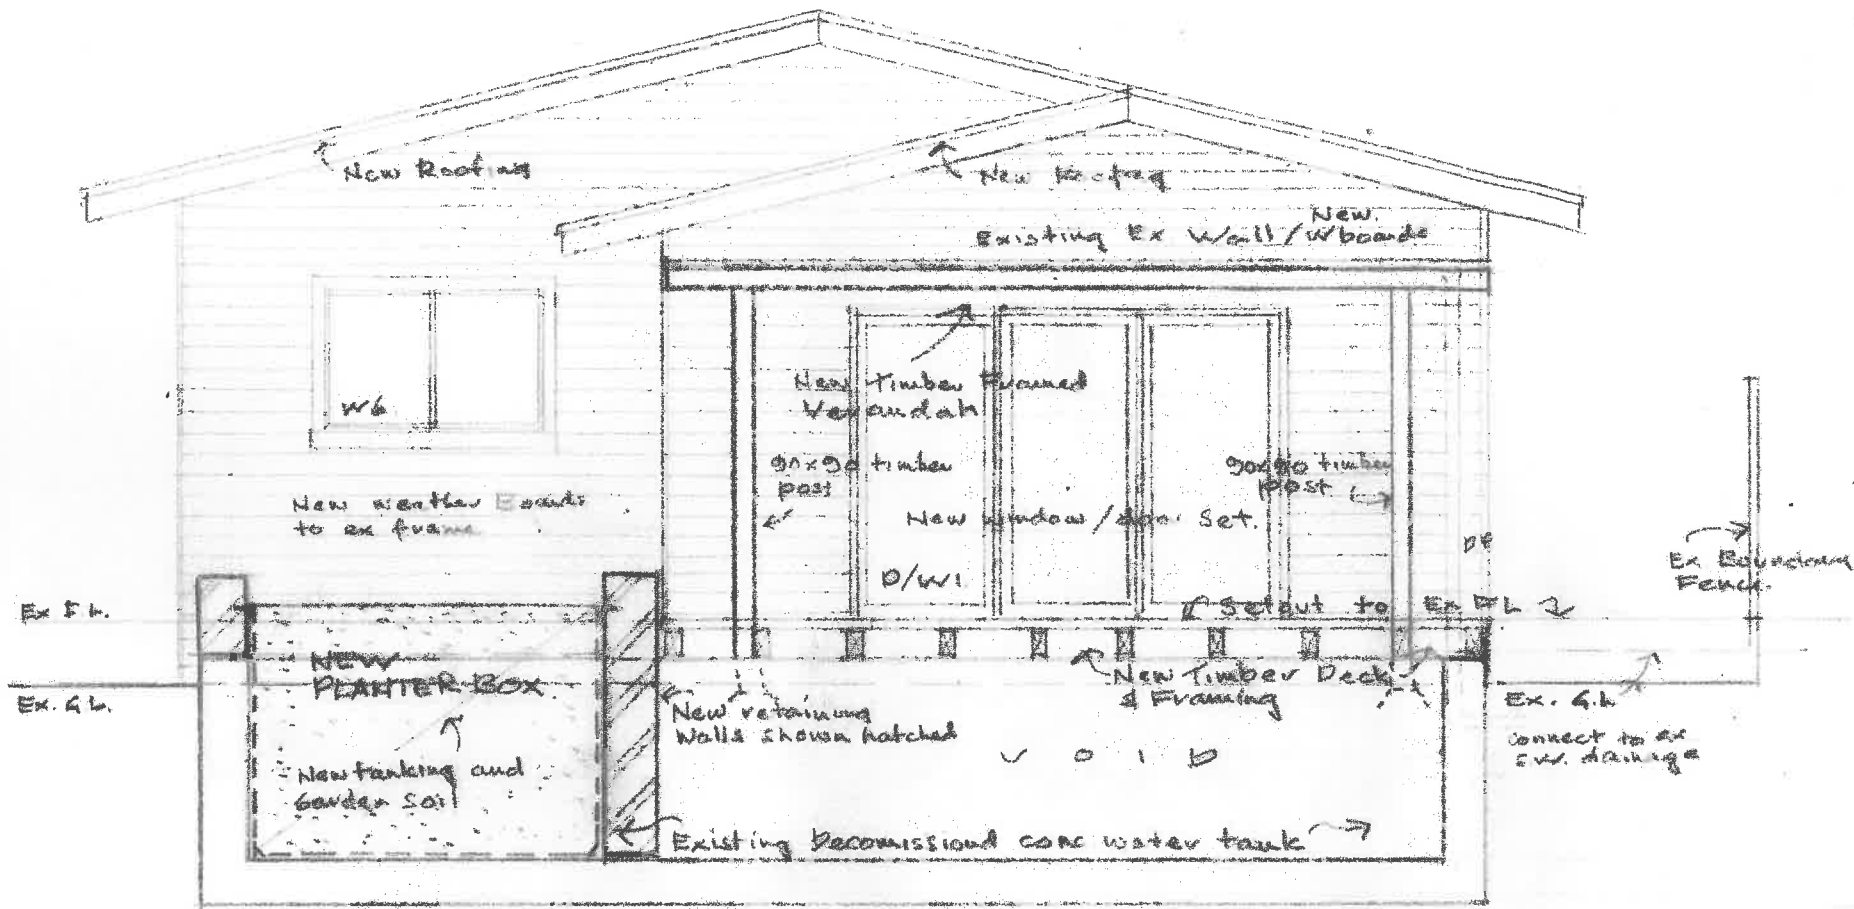 New Roofing
New Roofing
New.
Existing Ex Wall/Wboards
New Timber Framed
Verandah
W6
90x90 timber
post
90x90 timber
post
New weather Boards
to ex frame
New window/door Set.
DP
Ex Boundary
Fence.
D/W1
Ex F.L.
Setout to Ex F.L
NEW
PLANTER BOX
New Timber Deck
& Framing
Ex. G.L.
New retaining
Walls shown hatched
Ex. G.L
connect to ex
S.W. drainage
VOID
New tanking and
Garden Soil
Existing Decomissiond conc water tank